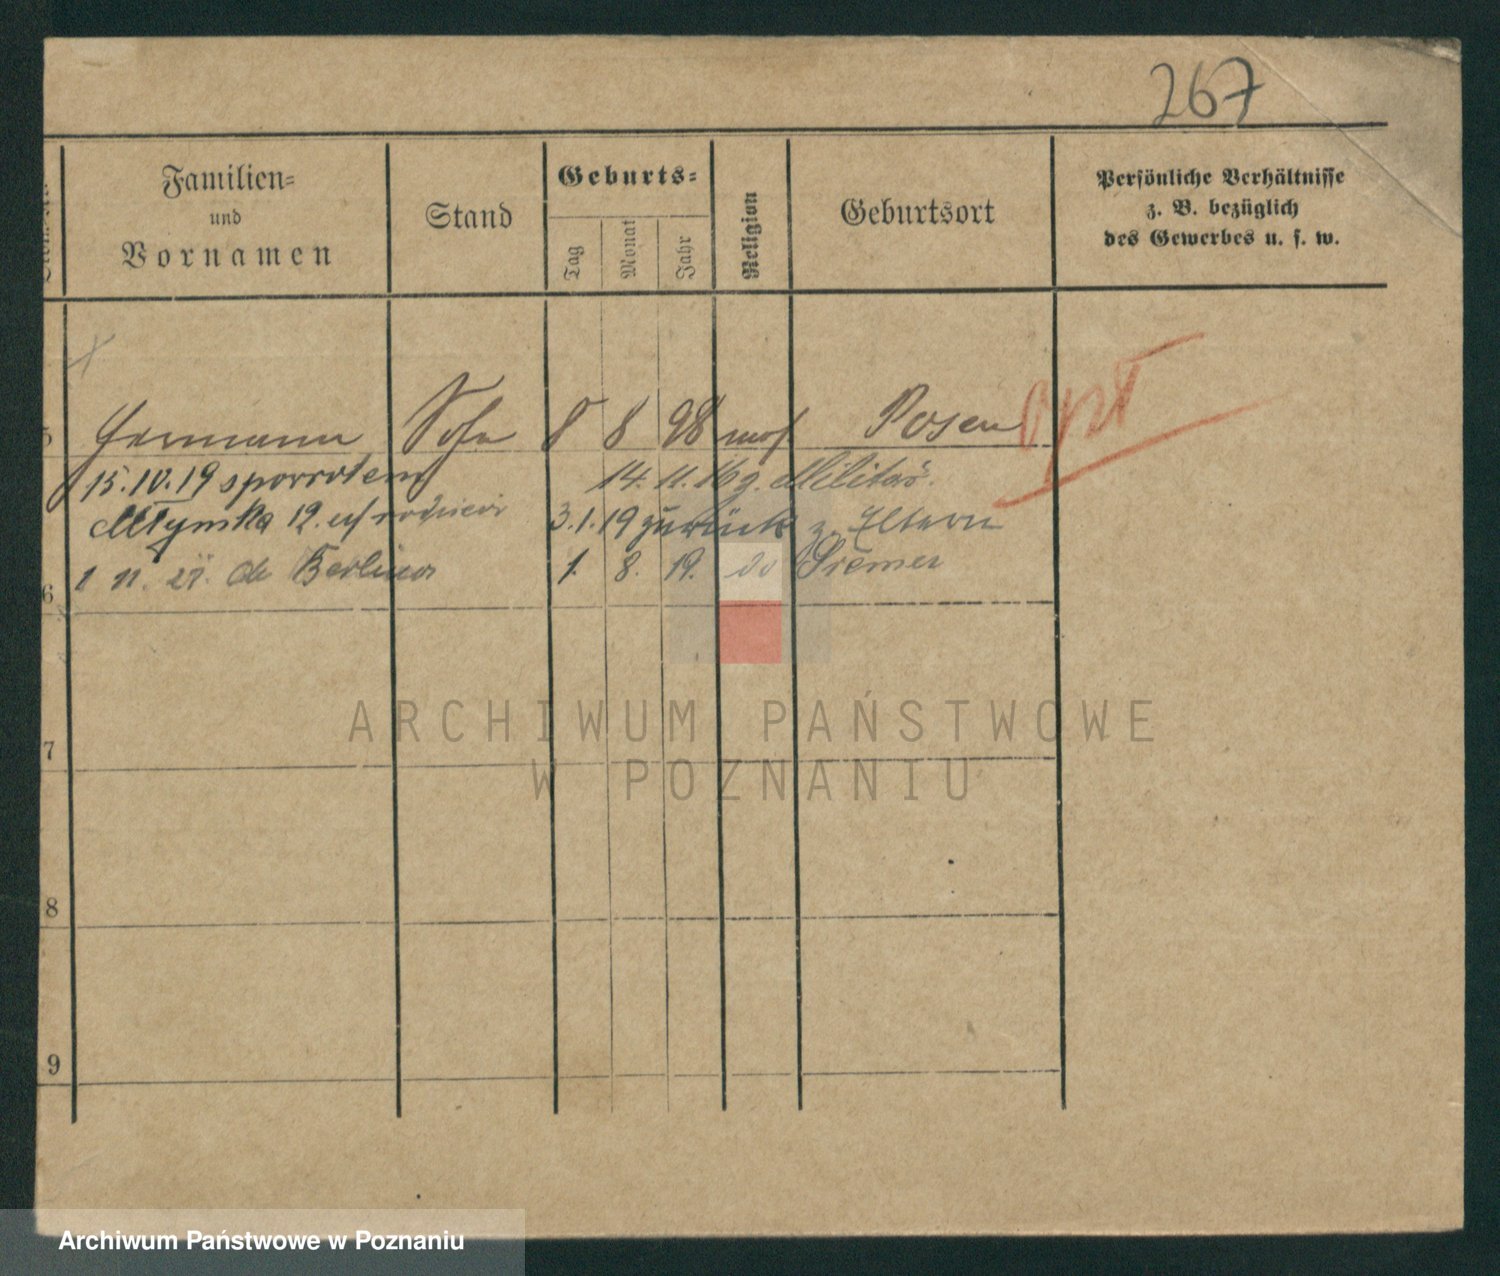 267
Familien=
und
Vornamen
Stand
Geburts=
Tag
Monat
Jahr
Religion
Geburtsort
Persönliche Verhältnisse
z. B. bezüglich
des Gewerbes u. s. w.
5 Hermann Sohn 8 8 98 mos Posen opt
15.IV.19 spowrotem 14.11.16 z. Militär.
Młyńska 12. u/ rodziców 3.1.19 zurück z. Eltern
1 11. 21. do Berlina 1. 8. 19. do Bremen
6
7
8
9
ARCHIWUM PAŃSTWOWE
W POZNANIU
Archiwum Państwowe w Poznaniu